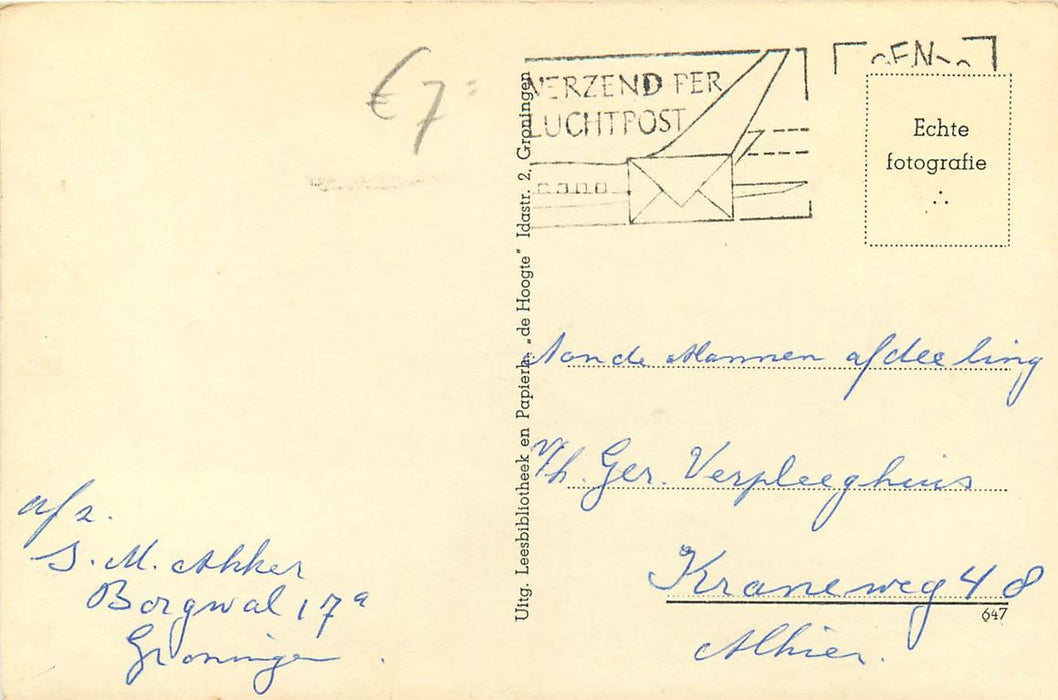 € 7=
VERZEND PER
LUCHTPOST
Echte
fotografie
Uitg. Leesbibliotheek en Papierh. „de Hoogte" Idastr. 2, Groningen
Aan de Mannen afdeeling
v/h. Ger. Verpleeghuis
Kraneweg 48
647
Alhier.
a/z.
S. M. Akker
Borgwal 17a
Groningen.